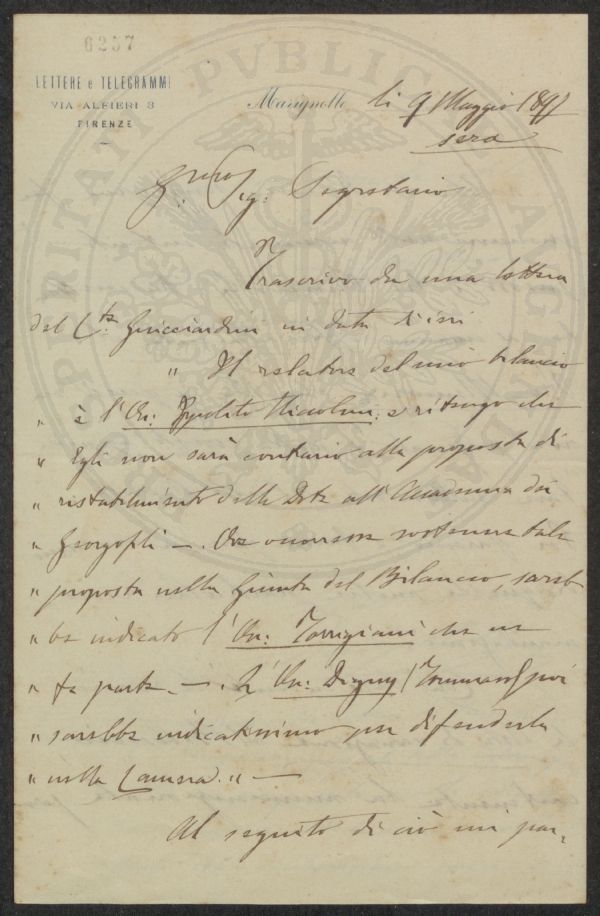 6257
LETTERE e TELEGRAMMI
VIA ALFIERI 3
FIRENZE
PROSPERITATI PVBLICAE AVGENDAE
Marignolle li 9 Maggio 1897
sera
Sig: Segretario
Trascrivo da una lettera
del Cte Guicciardini in data d'ieri
" Il relatore del mio bilancio
" è l'On: Ippolito Niccolini, e ritengo che
" Egli non sarà contrario alla proposta di
" ristabilimento della Dote all'Accademia dei
" Georgofili —. Ove occorresse sostenere tale
" proposta nella Giunta del Bilancio, sareb
" be indicato l'On: Torrigiani che ne
" fa parte. —. L'On: Digny (Tommaso) poi
" sarebbe indicatissimo per difenderla
" nella Camera. " —
Al seguito di ciò mi par,